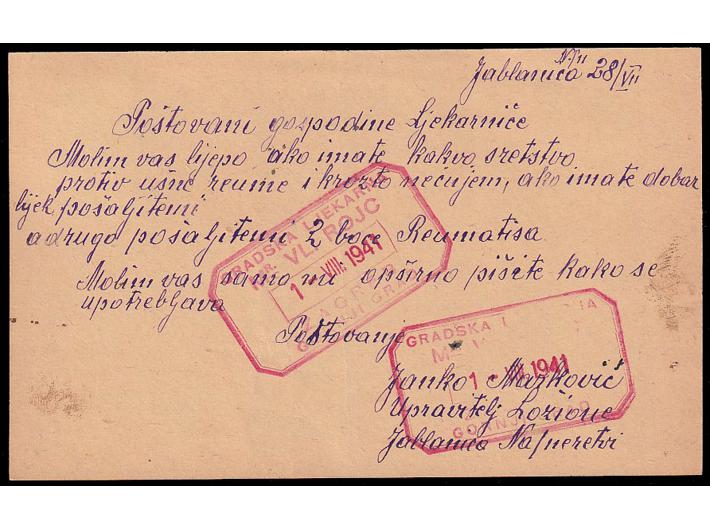 Jablanica N/N 28/VII
Poštovani gospodine Ljekarniče
Molim vas lijepo ako imate kakvo sretstvo
protiv ušne reume i krozto nečujem, ako imate dobar
lijek pošaljitemi
a drugo pošaljitemi 2 boce Reumatisa
Molim vas samo mi opširno pišite kako se
upotrebljava
Poštovanje
Janko Marković
Upravitelj Ložione
Jablanica Na/neretvi
GRADSKA LJEKARNA
MR. VL. ROJC
1 - VIII. 1941
GORNJI GRAD
GRADSKA
1 - 1941